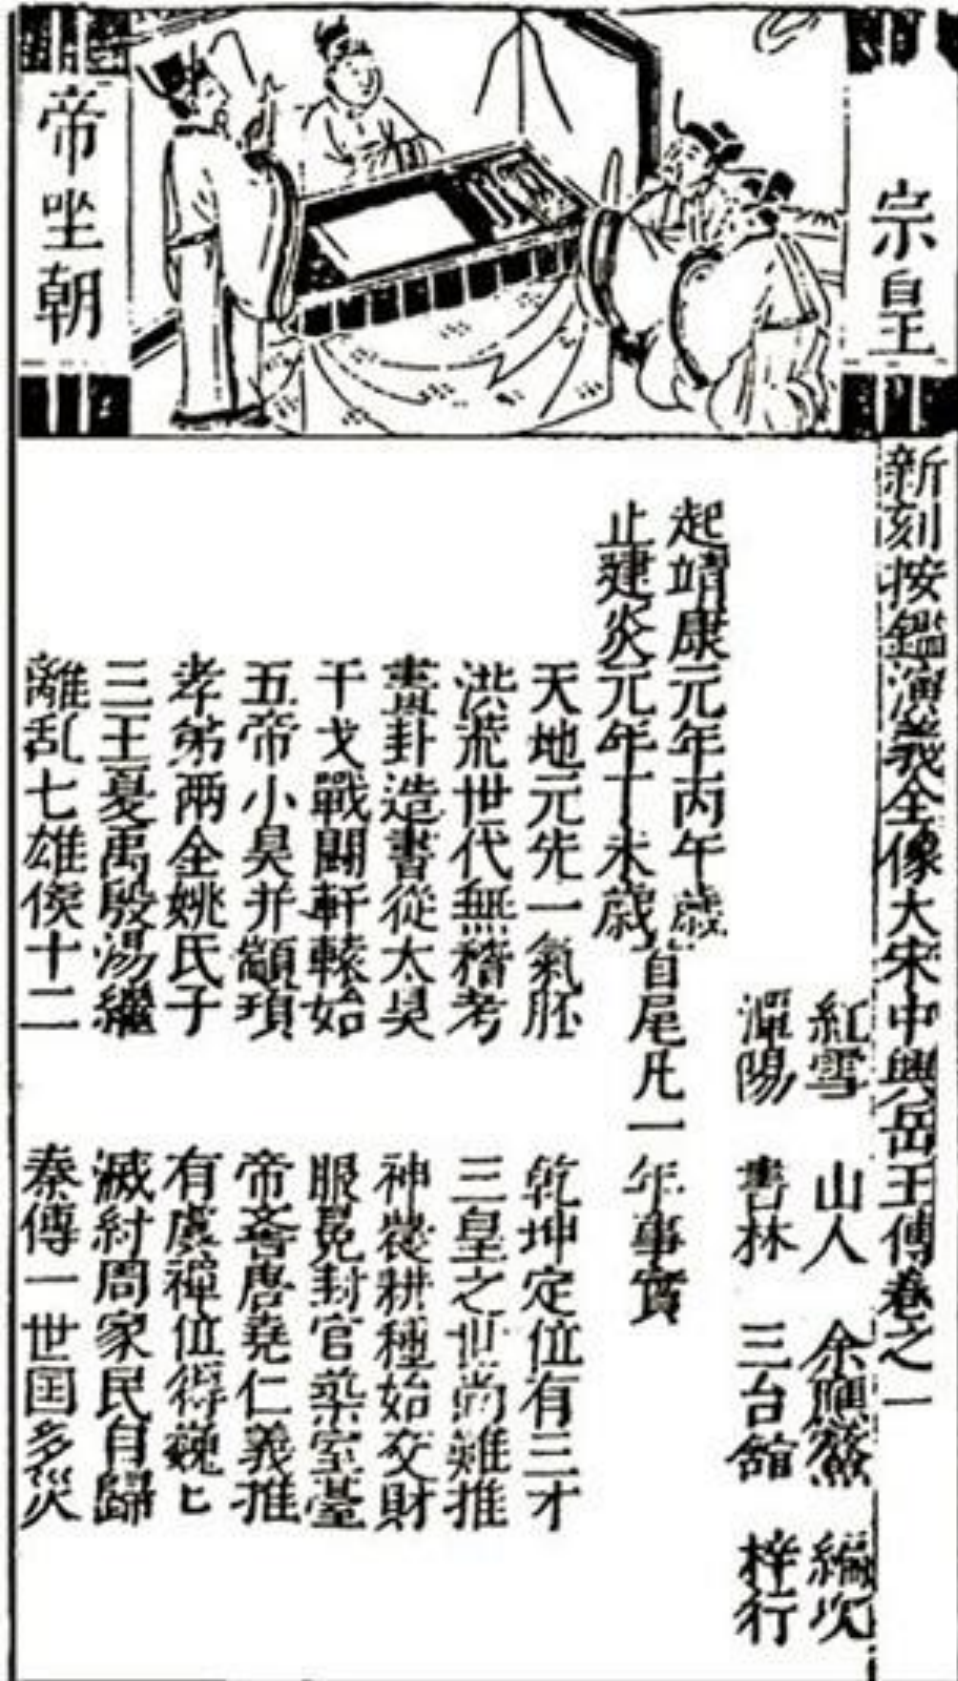 宗皇
帝坐朝
新刻按鑑演義全像大宋中興岳王傳卷之一
紅雪 山人 余應鰲 編次
潭陽 書林 三台舘 梓行
起靖康元年丙午歲
止建炎元年丁未歲
首尾凡一年事實
天地元先一氣胚 乾坤定位有三才
洪荒世代無稽考 三皇之世尚難推
畫卦造書從太昊 神農耕種始交財
干戈戰鬪軒轅始 服冕封官築室臺
五帝小昊并顓頊 帝嚳唐堯仁義推
孝弟兩全姚氏子 有虞禪位衍巍匕
三王夏禹殷湯繼 滅紂周家民自歸
離乱七雄侯十二 秦傳一世囯多災